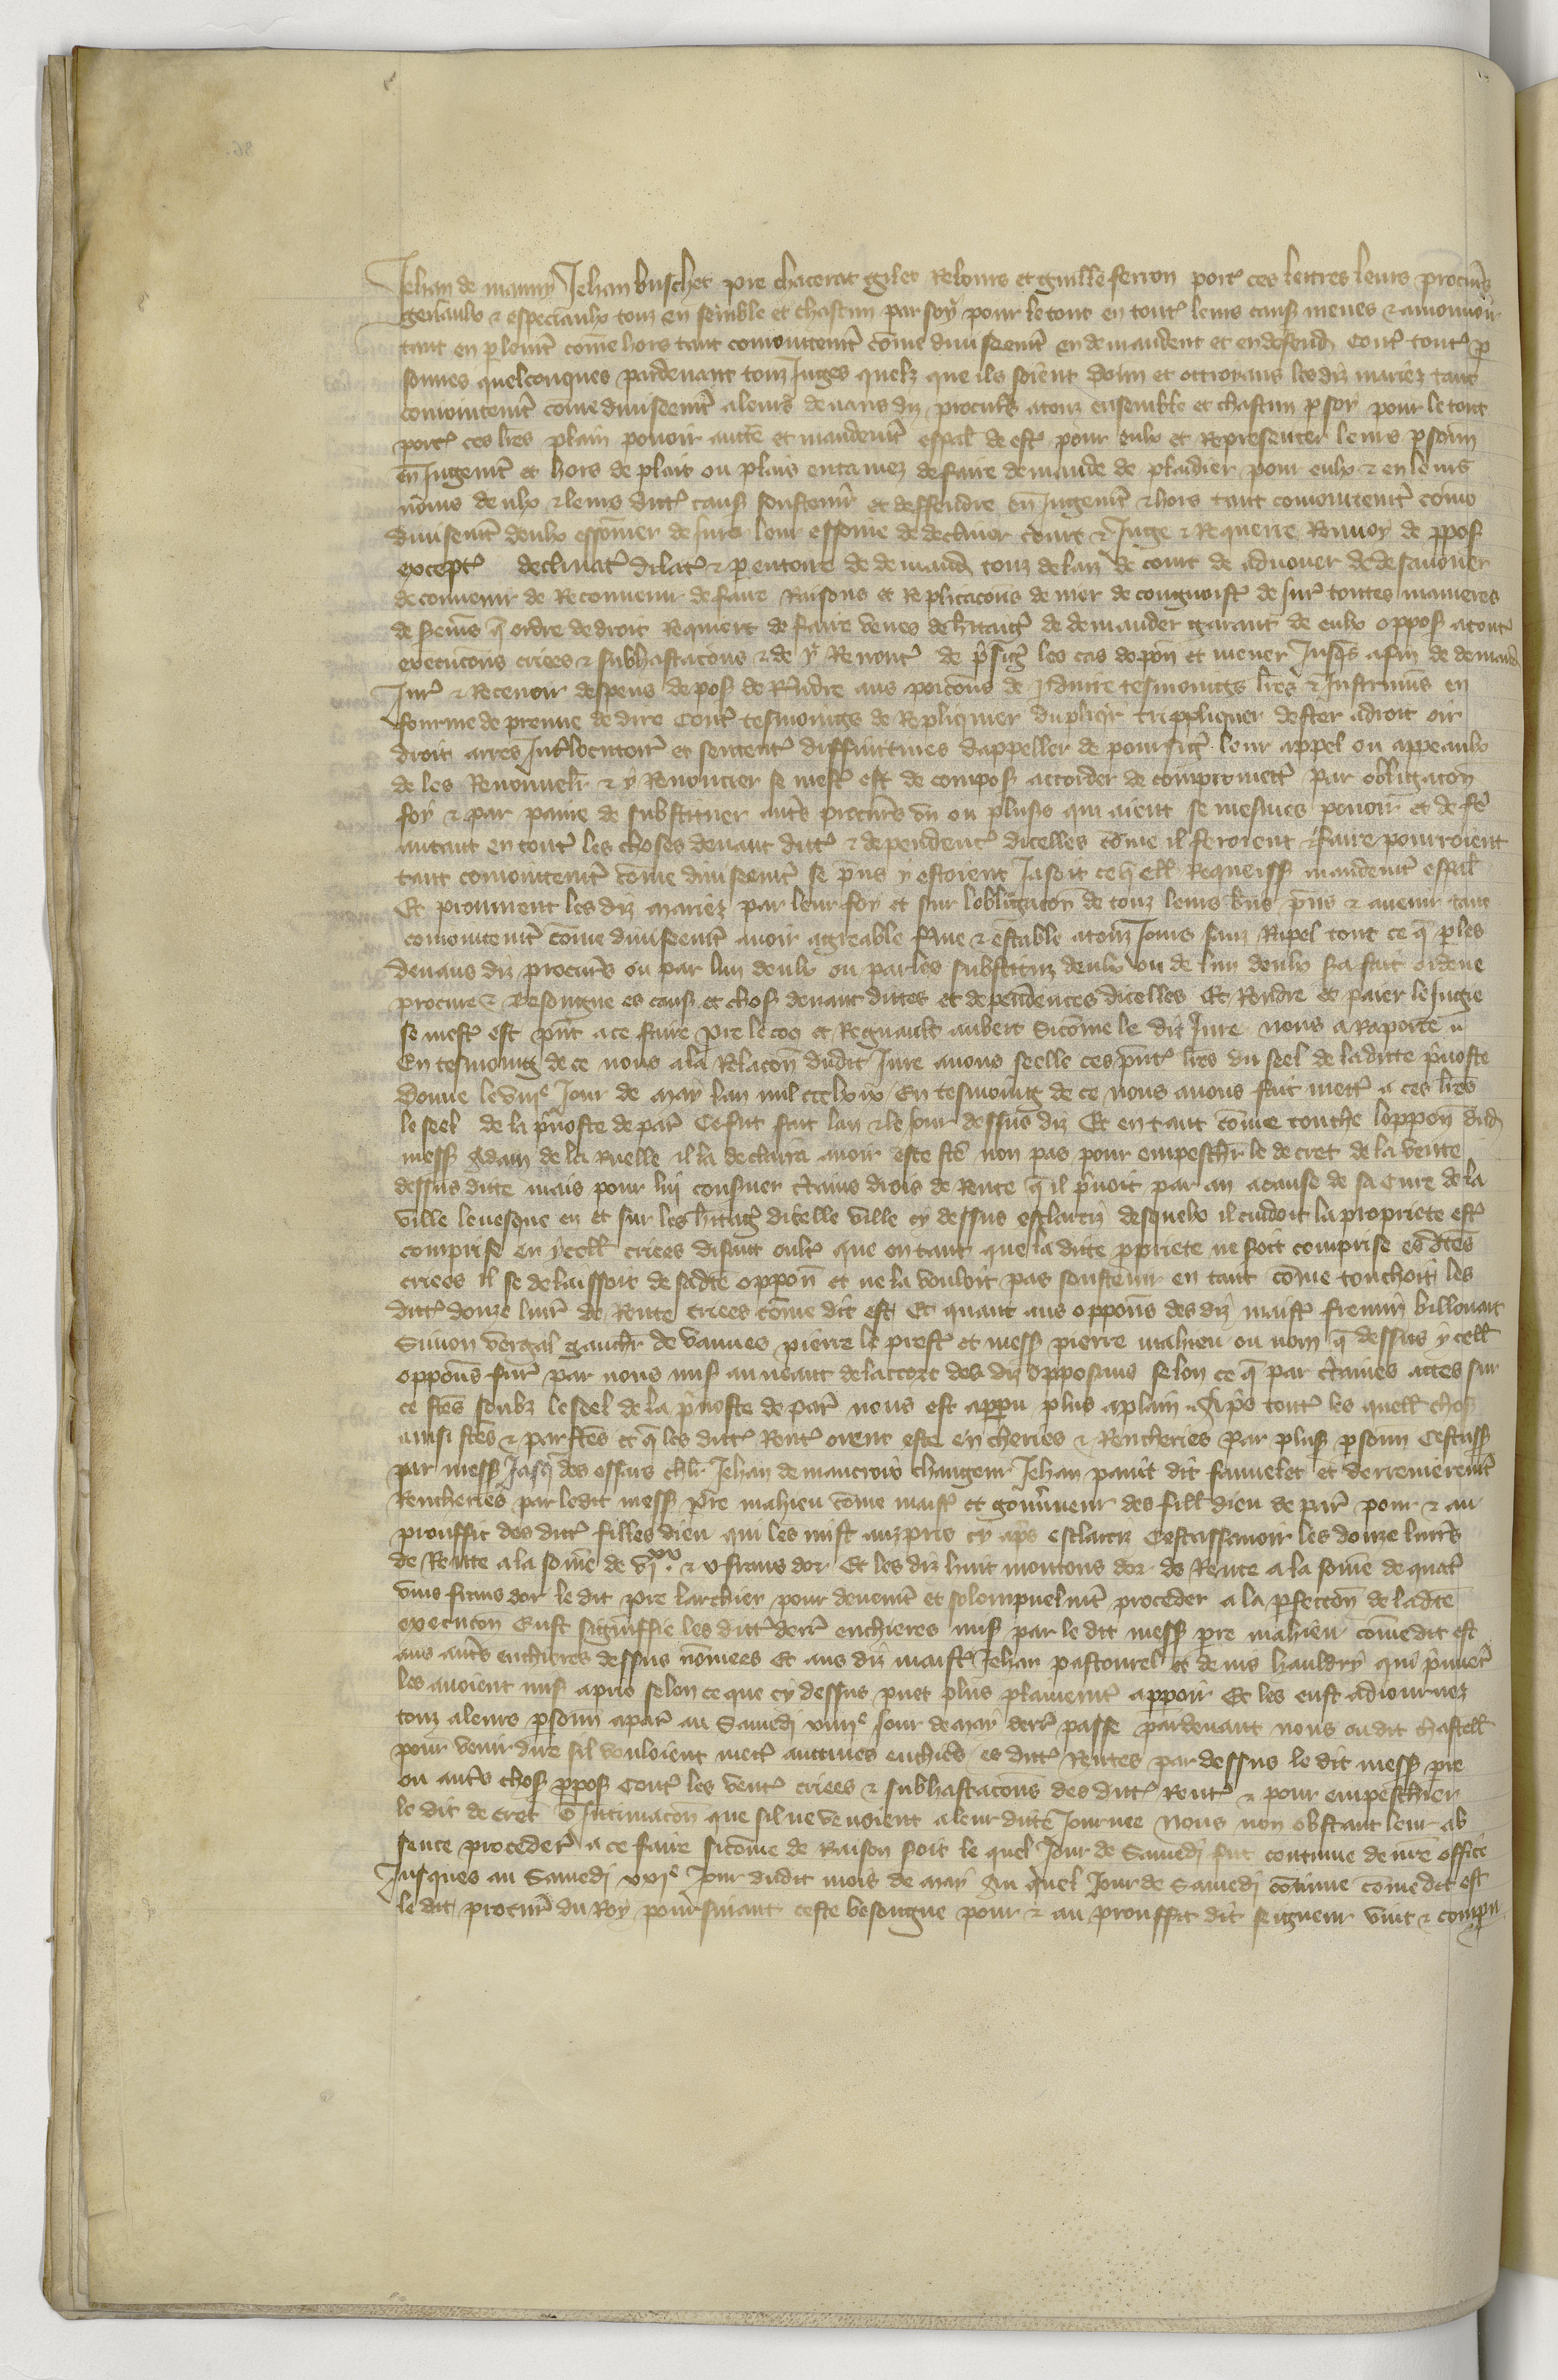 Jehan de manny Jehan buschet pre chacerat gilet Relouis et guillẽ ferron port' ces lettres leurs procurs
genaulx & especiaulx touz en semble et chascun par soy pour le tout en tout' leurs caus menes & a mouvoir
tant en plemt come hors tant coniointemt cõme diviseemt en demandent et en defend Cont' tout' p
sonnes quelconques pardevant touz Juges quelz que ilz soient donn et ottroians les diz mariez tant
coniointemt come diviseemt a leurs devans diz procurs a touz ensemble et chascun p soy pour le tout
port' ces lres plain povoir aucte et mandemt espal de est' pour eulx et Representer leurs psonn
en Jugemt et hors de plait ou plais entamez de faire demande de plaidier pour eulx & en leurs
noms deulx & leurs dict' caus soustenir et deffendre en Jugemt & hors tant coniointemt cõme
divisemt deulx essonier de Jurer leur essonie de decliner court & Juge & Requerre Renvoy de ppos
except' declinat' dilat' & pentoire de demand touz delaiz de court de advouer de desavouer
de convenir de Reconvenir de faire Raisons et Replicacons de nier de congnoist' de Jur' toutes manieres
de sermis q ordre de droit Requiert de faire venes de hitaig' de demander garant de eulx oppos a tout'
execucons criees & subhastacons & de y Renont' de psuig' les cas dopon et mener Jusqs a fin de demand
Jur' & Recevoir despens depos de Rndre aus posicons de pduire tesmoings lres & Instrumns en
fourme de preuve de dire Cont' tesmoings de Repliquier dupliqr trippliquer dester a droit oir
droit arres Intlocutoir' et sentent' diffinitives dappeller de poursuig' leur appel ou appeaulx
de les Renouveler & y Renoncier se mest' est de compos accorder de compromett' par obligacon
foy & par paine de substituer auts procurs un ou plusrs qui aient se mesmes povoir et de fe
autant en tout' les choses devant dict' & dependent' dicelles cõme il feroient & faire pourroient
tant coniointemt cõme diviseemt se pns y estoient Jasoit ce q ell' Requeiss mandemt espal
Et promment les diz mariez par leur foy et sur lobligacon de touz leurs bns pns & avenir tant
coniointemt cõme diviseemt avoir agreable ferme & estable a touz Jours sanz Rapel tout ce q p les
devans diz procurs ou par lun deulx ou par les substituz deulx ou de lun deulx sa fait ordene
procure & Besongne es caus et chos devant dictes et dependences dicelles Et Rendre et paier le Jugie
se mest' est pnt a ce faire pre le coq et Regnault aubert Sicõme le dit Jure nous a Raporte
En tesmoing de ce nous a la Relacon dudit Jure avons seelle ces pnt' lres du seel de ladicte pvoste
donne le viiie Jour de may lan mil ccclxix En tesmoing de ce nous avons fait mett' a ces lres
le seel de la pvoste de par' Ce fut fait lan & le Jour dessus diz Et en tant cõme touche loppon dud
mess Adam de la Ruelle il la declaira avoir este fte non pas pour empeschr le decret de la vente
dessus dicte mais pour lui conserver ctains drois de Rente q il pnoit par an a cause de sa Cure de la
ville levesque en et sur les hitag' dicelle ville cy dessus esclarcis desquelx il cuidoit la propriete est'
comprise en ycell' criees disant oult' que en tant que la dicte ppriete ne soit comprise es dtes
criees il se delaissoit de sadte oppon et ne la vouloit pas soustenir en tant cõme touchoit les
dict' douze livr' de Rente criees cõme dit est Et quant aus oppons des diz maist' fremin billouart
Simon vergal gauchr de vannes pierre le prest' et mess pierre mahieu ou nom q dessus ycell'
oppons fur' par nous mis au neant de laccort des diz opposans selon ce q par ctaines actes sur
ce ftes soubz le seel de la pvoste de par' nous est apparu plus a plain Aps tout' les quell' chos
ainsi ftes & parftes et q les dict' Rent' orent este encheries & Rencheries par plus psonn Cestass
par mess Jaqs des essars chlr Jehan de maucrois changeur Jehan pavit dit fauvelet et derrenieremt
Rencheries par ledit mess pre mahieu cõme maist' et gouvneur des fill' dieu de par' pour & au
prouffit des dict' filles dieu qui les mist auz pris cy aps esclarciz Cestassavoir les douze livrs
de Rente a la some de vixx & v frans dor Et les diz huit moutons dor de Rente a la some de quat'
vins frans dor le dit pre larchier pour deuemt et solempnelmt proceder a la pfection de ladte
execucon Eust signiffie les dict' derr' encheres mis par le dit mess pre mahieu cõme dit est
aus auts encheres dessus nõmees Et aus diz maist' Jehan pastourel et denis hauldry qui pmiet
les avoient mis a pris selon ce que cy dessus puet plus plainemt apparoir Et les eust adiournez
touz a leurs psonn a par' au Samedi xiiiie Jour de may derr' passe pardevant nous ou dit chastell'
pour venir dire sil vouloient mett' aucunes encheres es dict' Rentes par dessus le dit mess pre
ou auts chos ppos Cont' les vent' criees & subhastacons des dict' Rent' & pour empeschier
le dit decret o Intimacon que sil ne venoient a leur dicte Journee Nous non obstant leur ab
sence proceder' a ce faire sicõme de Raison soit le quel Jour de Samedi fut continue de nre office
Jusques au Samedi xxie Jour dudit mois de may Au quel Jour de Samedi continue cõme dit est
le dit procur' du Roy poursuiant ceste besongne pour & au prouffit dit seigneur vint & comparu